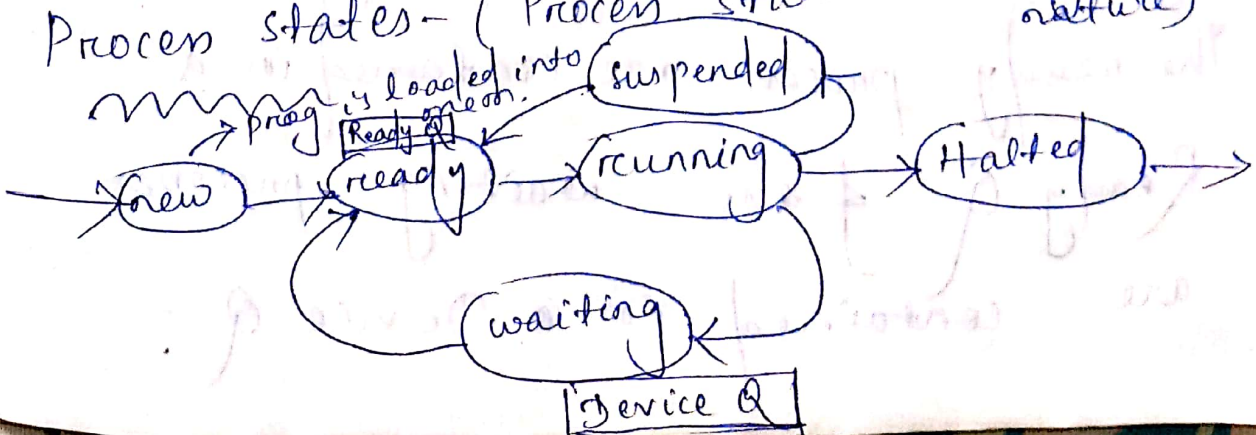 Process states - ( Process
suspended
prog is loaded into
mem.
Ready Q
new
ready
running
Halted
waiting
Device Q